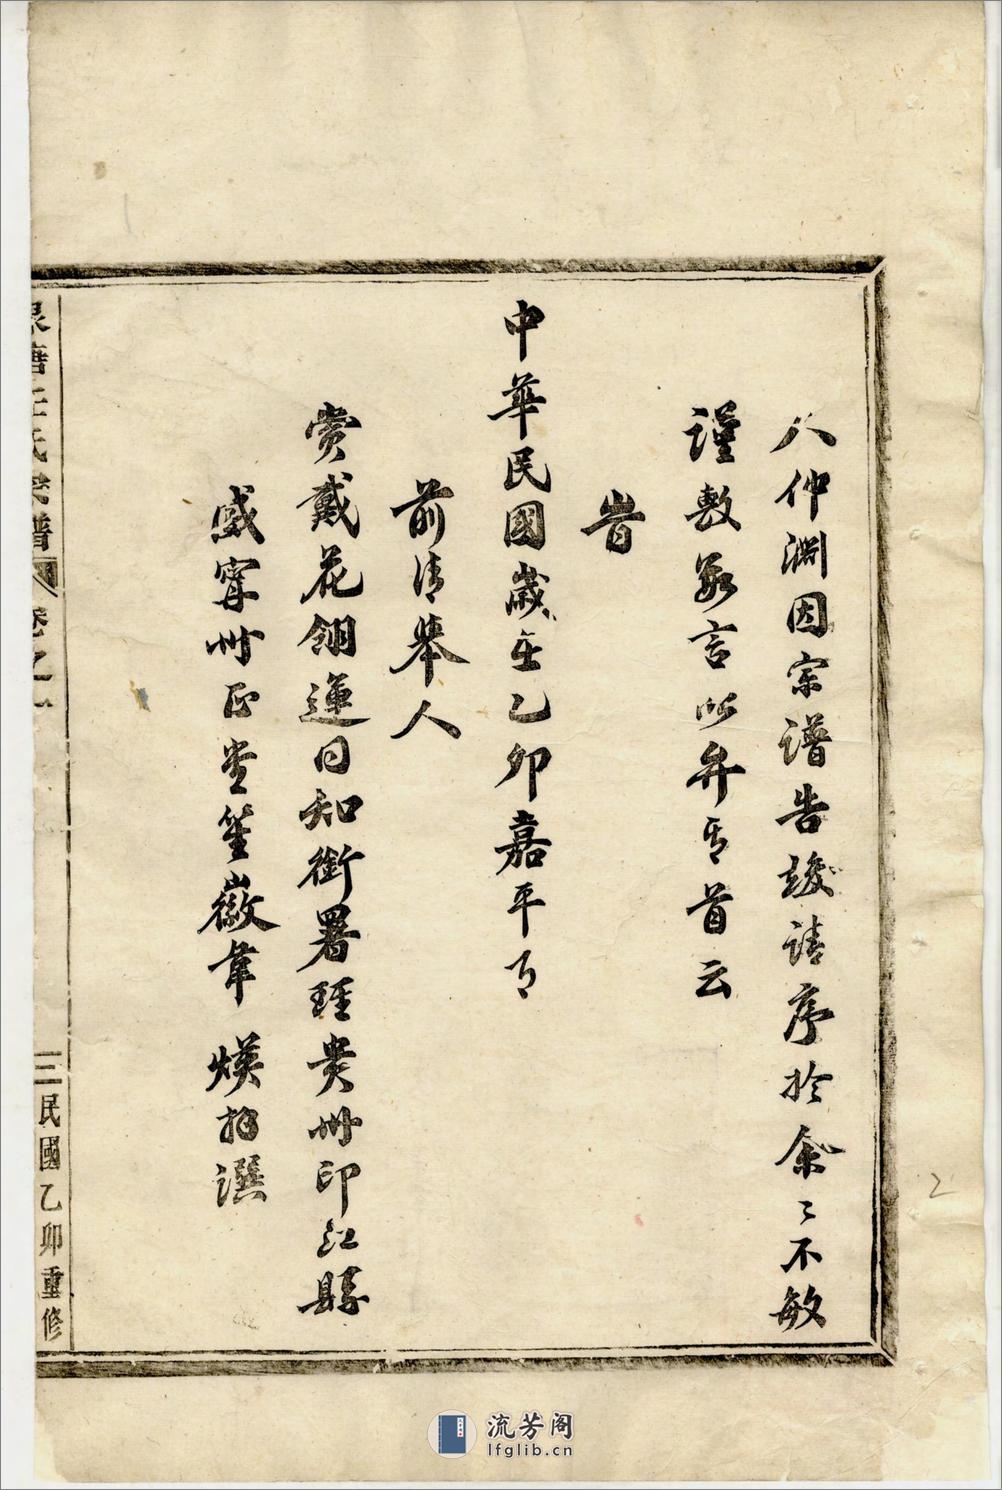 人仲淵因宗譜告竣請序於余〻不敏
謹敷數言以弁其首云
 旹
中華民國歲在乙卯嘉平月
前清舉人
賞戴花翎運同知銜署理貴州印江縣
威寧州正堂笙徽韋煐拜譔
塘任氏宗譜 卷之一 三 民國乙卯重修
2
流芳阁
lfglib.cn